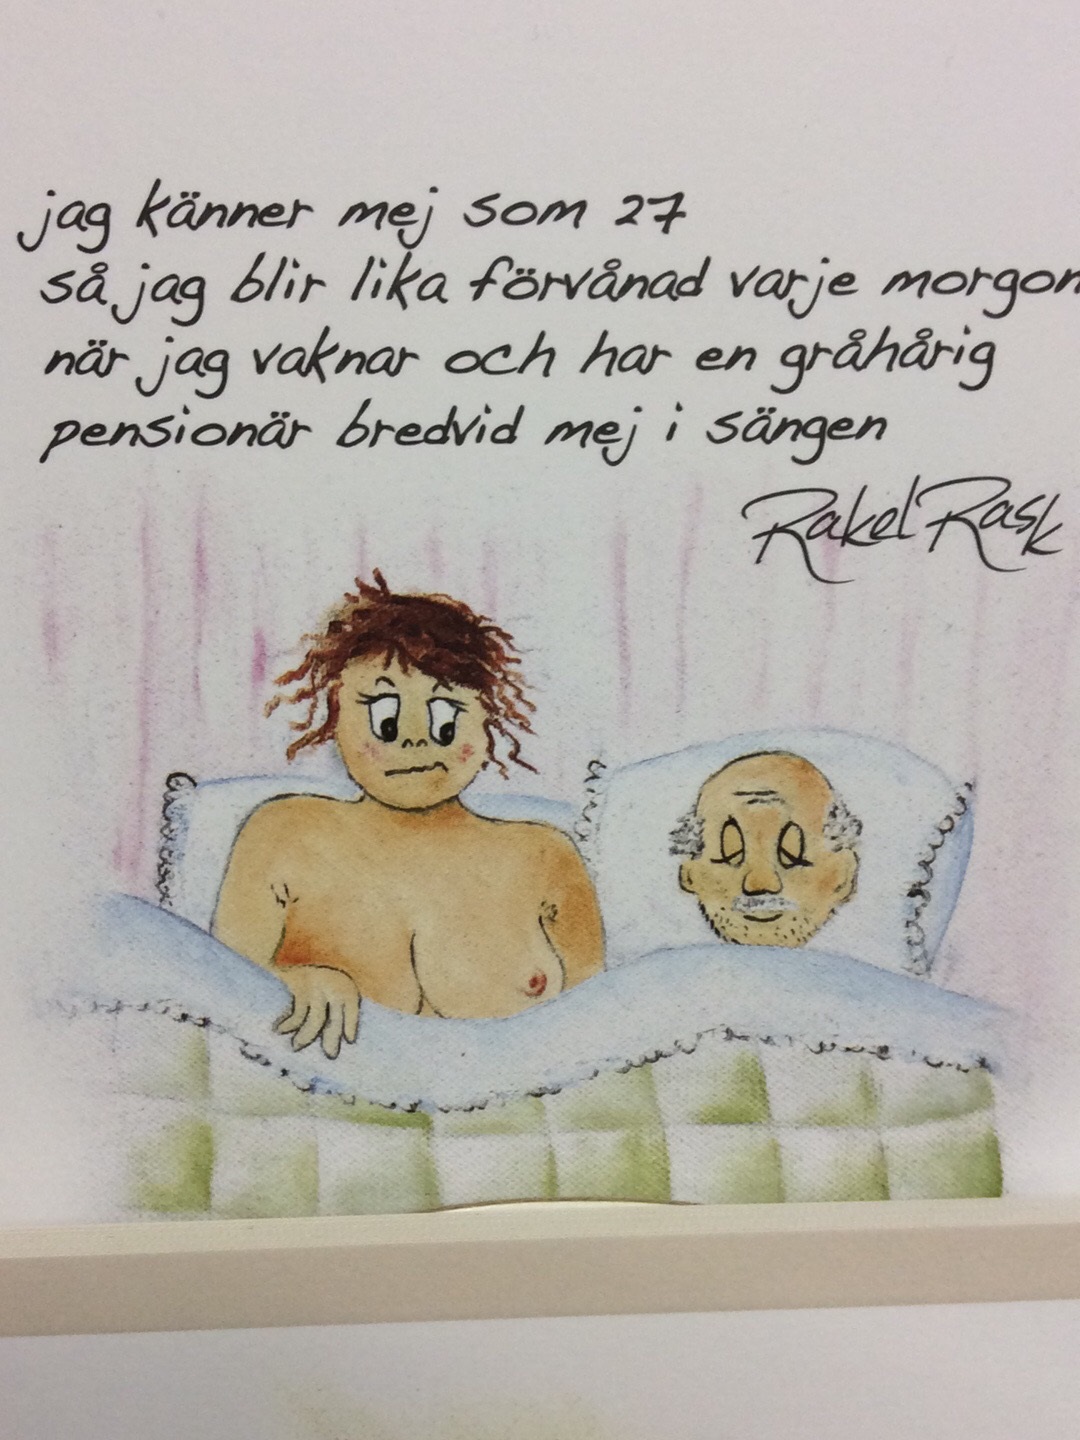 jag känner mej som 27
så jag blir lika förvånad varje morgon
när jag vaknar och har en gråhårig
pensionär bredvid mej i sängen
Rakel Rask